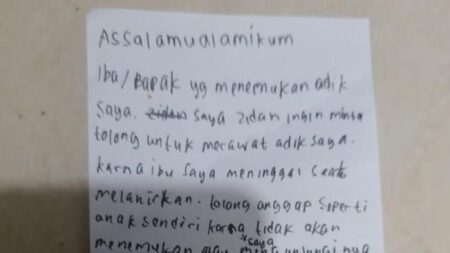 Assalamualamikum
Iba/Bapak yg menemukan adik
saya. zidan saya zidan ingin minta
tolong untuk merawat adik saya.
karna ibu saya meninggal saat
melanirkan. tolong anggap seperti
anak sendiri karna tidak akan
menemukan saya